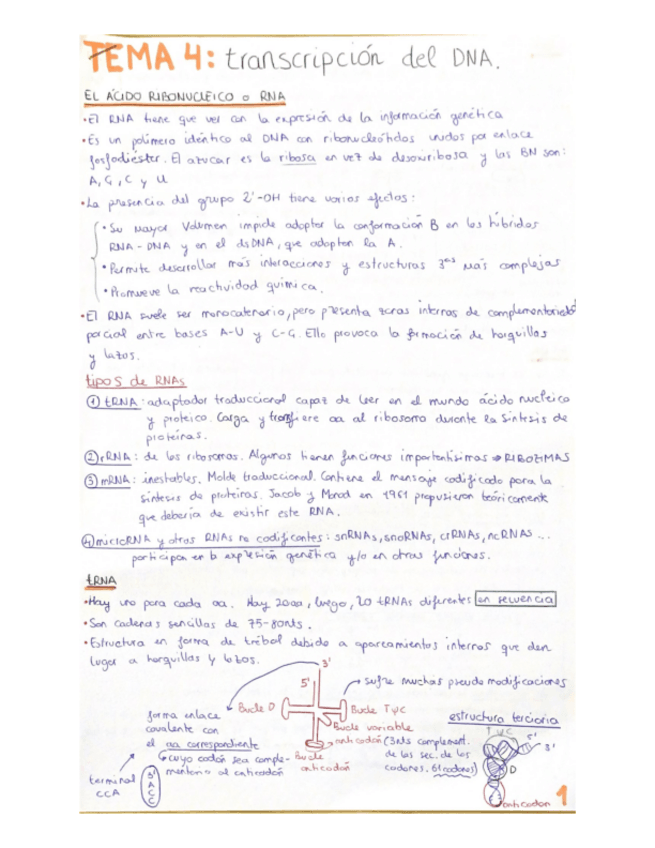 TEMA 4: transcripción del DNA.
EL ÁCIDO RIBONUCLEICO o RNA
• El RNA tiene que ver con la expresión de la información genética
• Es un polímero idéntico al DNA con ribonucleótidos unidos por enlace
fosfodiéster. El azucar es la ribosa en vez de desoxirribosa y las BN son:
A, G, C y U
• La presencia del grupo 2'-OH tiene varios efectos:
• Su mayor volumen impide adoptar la conformación B en los híbridos
RNA-DNA y en el dsDNA, que adoptan la A.
• Permite desarrollar más interacciones y estructuras 3ªˢ más complejas
• Promueve la reactividad química.
• El RNA suele ser monocatenario, pero presenta zonas internas de complementariedad
parcial entre bases A-U y C-G. Ello provoca la formación de horquillas
y lazos.
tipos de RNAs
① tRNA: adaptador traduccional capaz de leer en el mundo ácido nucleico
y proteico. Carga y transfiere aa al ribosoma durante la síntesis de
proteínas.
② rRNA: de los ribosomas. Algunos tienen funciones importantísimas → RIBOZIMAS
③ mRNA: inestables. Molde traduccional. Contiene el mensaje codificado para la
síntesis de proteínas. Jacob y Monod en 1961 propusieron teóricamente
que debería de existir este RNA.
④ microRNA y otros RNAs no codificantes: snRNAs, snoRNAs, crRNAs, ncRNAS ...
participan en la expresión genética y/o en otras funciones.
tRNA
• Hay uno para cada aa. Hay 20aa, luego, 20 tRNAs diferentes en secuencia
• Son cadenas sencillas de 75-80nts.
• Estructura en forma de trébol debido a apareamientos internos que dan
lugar a horquillas y lazos.
3'
5'
→ sufre muchas pseudo modificaciones
Bucle D
Bucle TψC
Bucle variable
forma enlace
covalente con
el aa correspondiente
cuyo codón sea comple-
mentario al anticodón
Bucle
anticodón
anticodón (3nts complement.
de las sec. de los
codones. 61 codones)
terminal
CCA
3'
A
C
C
estructura terciaria
TψC
5'
3'
D
anticodon
1